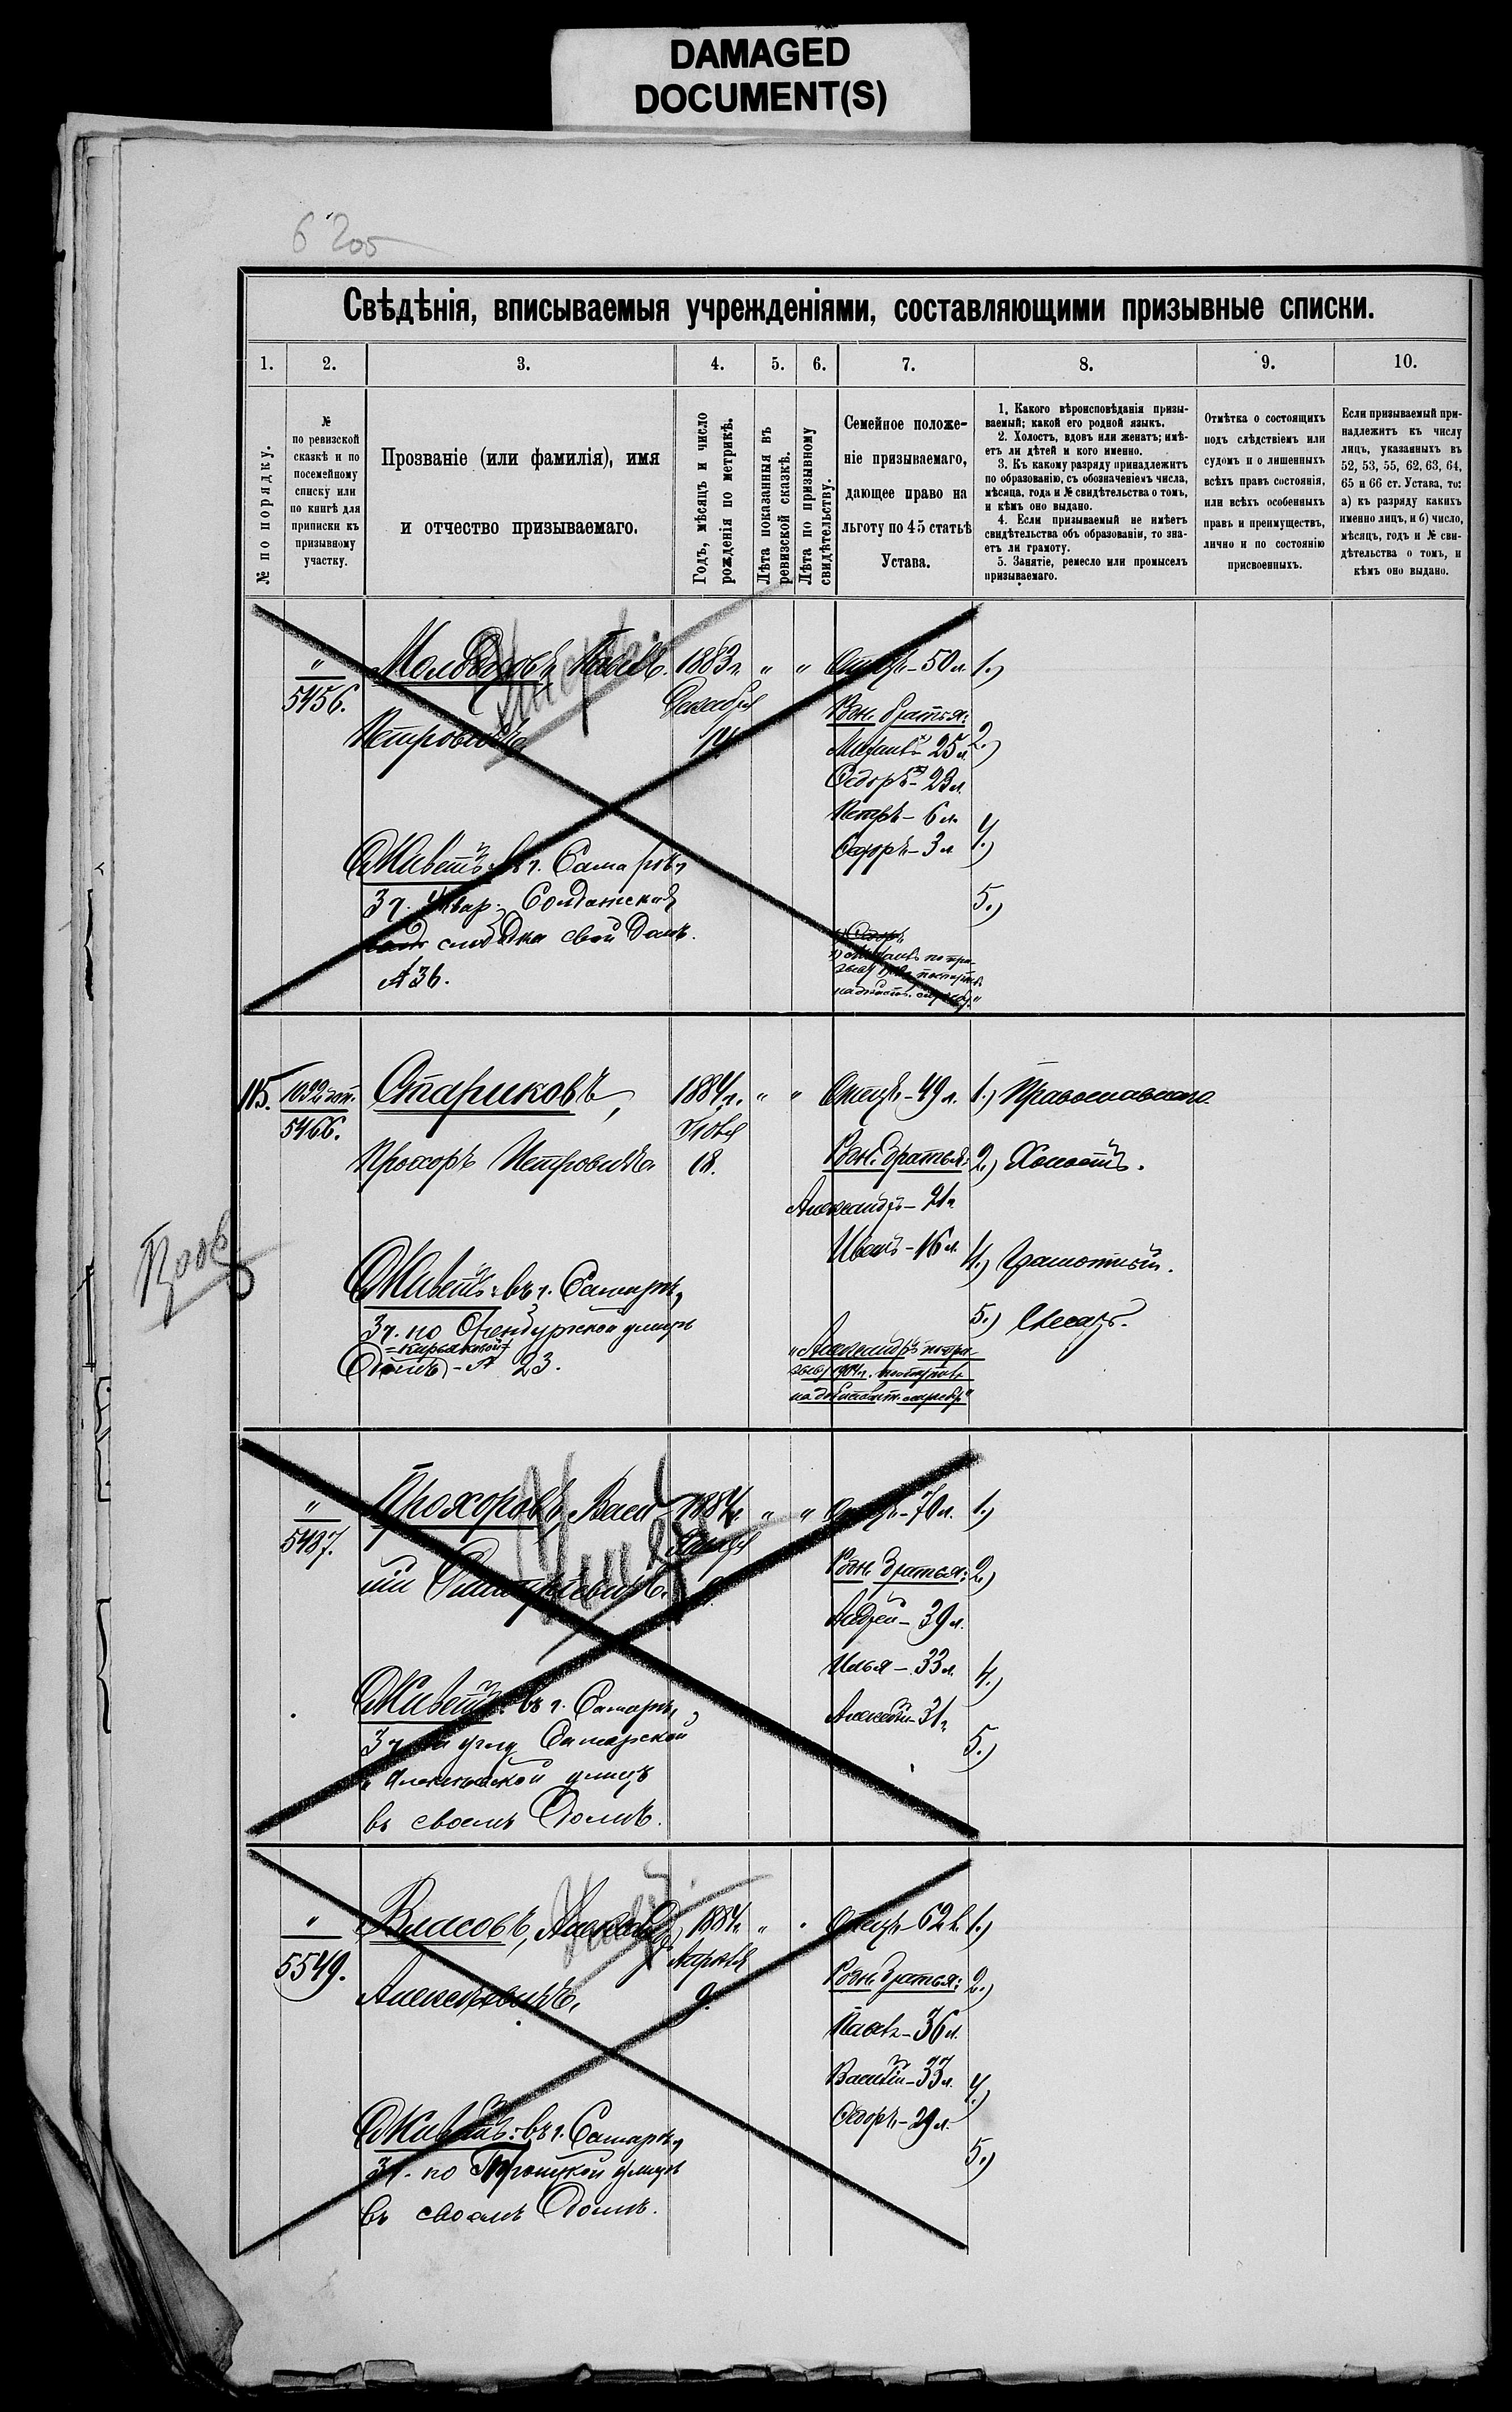 DAMAGED
DOCUMENT(S)
Свѣдѣнія, вписываемыя учрежденіями, составляющими призывные списки.
1. 2. 3. 4. 5. 6. 7. 8. 9. 10.
№ по порядку.
№
по ревизской
сказкѣ и по
посемейному
списку или
по книгѣ для
приписки къ
призывному
участку.
Прозваніе (или фамилія), имя
и отчество призываемаго.
Годъ, мѣсяцъ и число
рожденія по метрикѣ.
Лѣта показанныя въ
ревизской сказкѣ.
Лѣта по призывному
свидѣтельству.
Семейное положе-
ніе призываемаго,
дающее право на
льготу по 45 статьѣ
Устава.
1. Какого вѣроисповѣданія призы-
ваемый; какой его родной языкъ.
2. Холостъ, вдовъ или женатъ; имѣ-
етъ ли дѣтей и кого именно.
3. Къ какому разряду принадлежитъ
по образованію, съ обозначеніемъ числа,
мѣсяца, года и № свидѣтельства о томъ,
и кѣмъ оно выдано.
4. Если призываемый не имѣетъ
свидѣтельства объ образованіи, то зна-
етъ ли грамоту.
5. Занятіе, ремесло или промыселъ
призываемаго.
Отмѣтка о состоящихъ
подъ слѣдствіемъ или
судомъ и о лишенныхъ
всѣхъ правъ состоянія,
или всѣхъ особенныхъ
правъ и преимуществъ,
лично и по состоянію
присвоенныхъ.
Если призываемый при-
надлежитъ къ числу
лицъ, указанныхъ въ
52, 53, 55, 62, 63, 64,
65 и 66 ст. Устава, то:
а) къ разряду какихъ
именно лицъ, и б) число,
мѣсяцъ, годъ и № сви-
дѣтельства о томъ, и
кѣмъ оно выдано.
" 1883 г. " " Отецъ - 50 л. 1.)
5456. Декабря
Петровичъ. Родн. братья:
25 л. 2.)
Ѳедоръ - 23 л.
Петръ - 6 л.
3 л. 4.)
Живетъ: въ г. Самарѣ,
3 ч. Солдатская
слободка свой домъ.
№ 36.
5.)
115. 5466. Стариковъ, 1884 г. " " Отецъ - 49 л. 1.) Православнаго.
Іюля
Прохоръ Петровичъ. 18. Родн. братья: 2.) Холостъ.
Александръ - 21 г.
Иванъ - 16 л. 4.) Грамотный.
Живетъ: въ г. Самарѣ,
3 ч. по Оренбургской улицѣ
домъ - № 23.
5.) Слесарь.
"Александръ по при-
зыву 1904 г. поступилъ
на дѣйствит. службу"
" Прохоровъ, Васи- 1884 г. " " Отецъ - 70 л. 1.)
5487.
лій Родн. братья: 2.)
Андрей - 39 л.
Илья - 33 л. 4.)
Алексѣй - 31 г.
Живетъ: въ г. Самарѣ,
3 ч. на углу Самарской
и улицъ
въ своемъ домѣ.
5.)
" Власовъ, 1884 г. " Отецъ - 62 л. 1.)
5549. Апрѣля
9. Родн. братья: 2.)
Павелъ - 36 л.
Василій - 33 л. 4.)
Ѳедоръ - 29 л.
Живетъ: въ г. Самарѣ,
3 ч. по Троицкой улицѣ
въ своемъ домѣ.
5.)